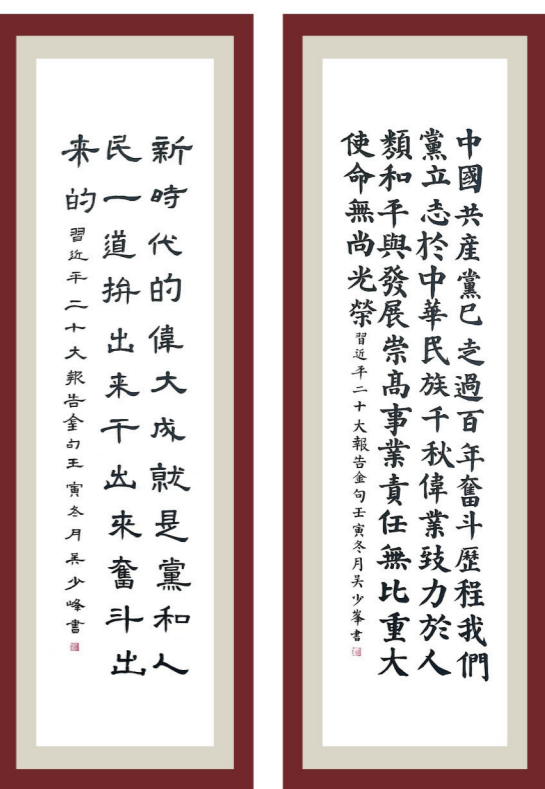 中國共産黨已走過百年奮斗歷程我們
黨立志於中華民族千秋偉業致力於人
類和平與發展崇高事業責任無比重大
使命無尚光榮習近平二十大報告金句壬寅冬月吴少峯書
新時代的偉大成就是黨和人
民一道拚出来干出來奮斗出
来的習近平二十大報告金句壬寅冬月吴少峰書